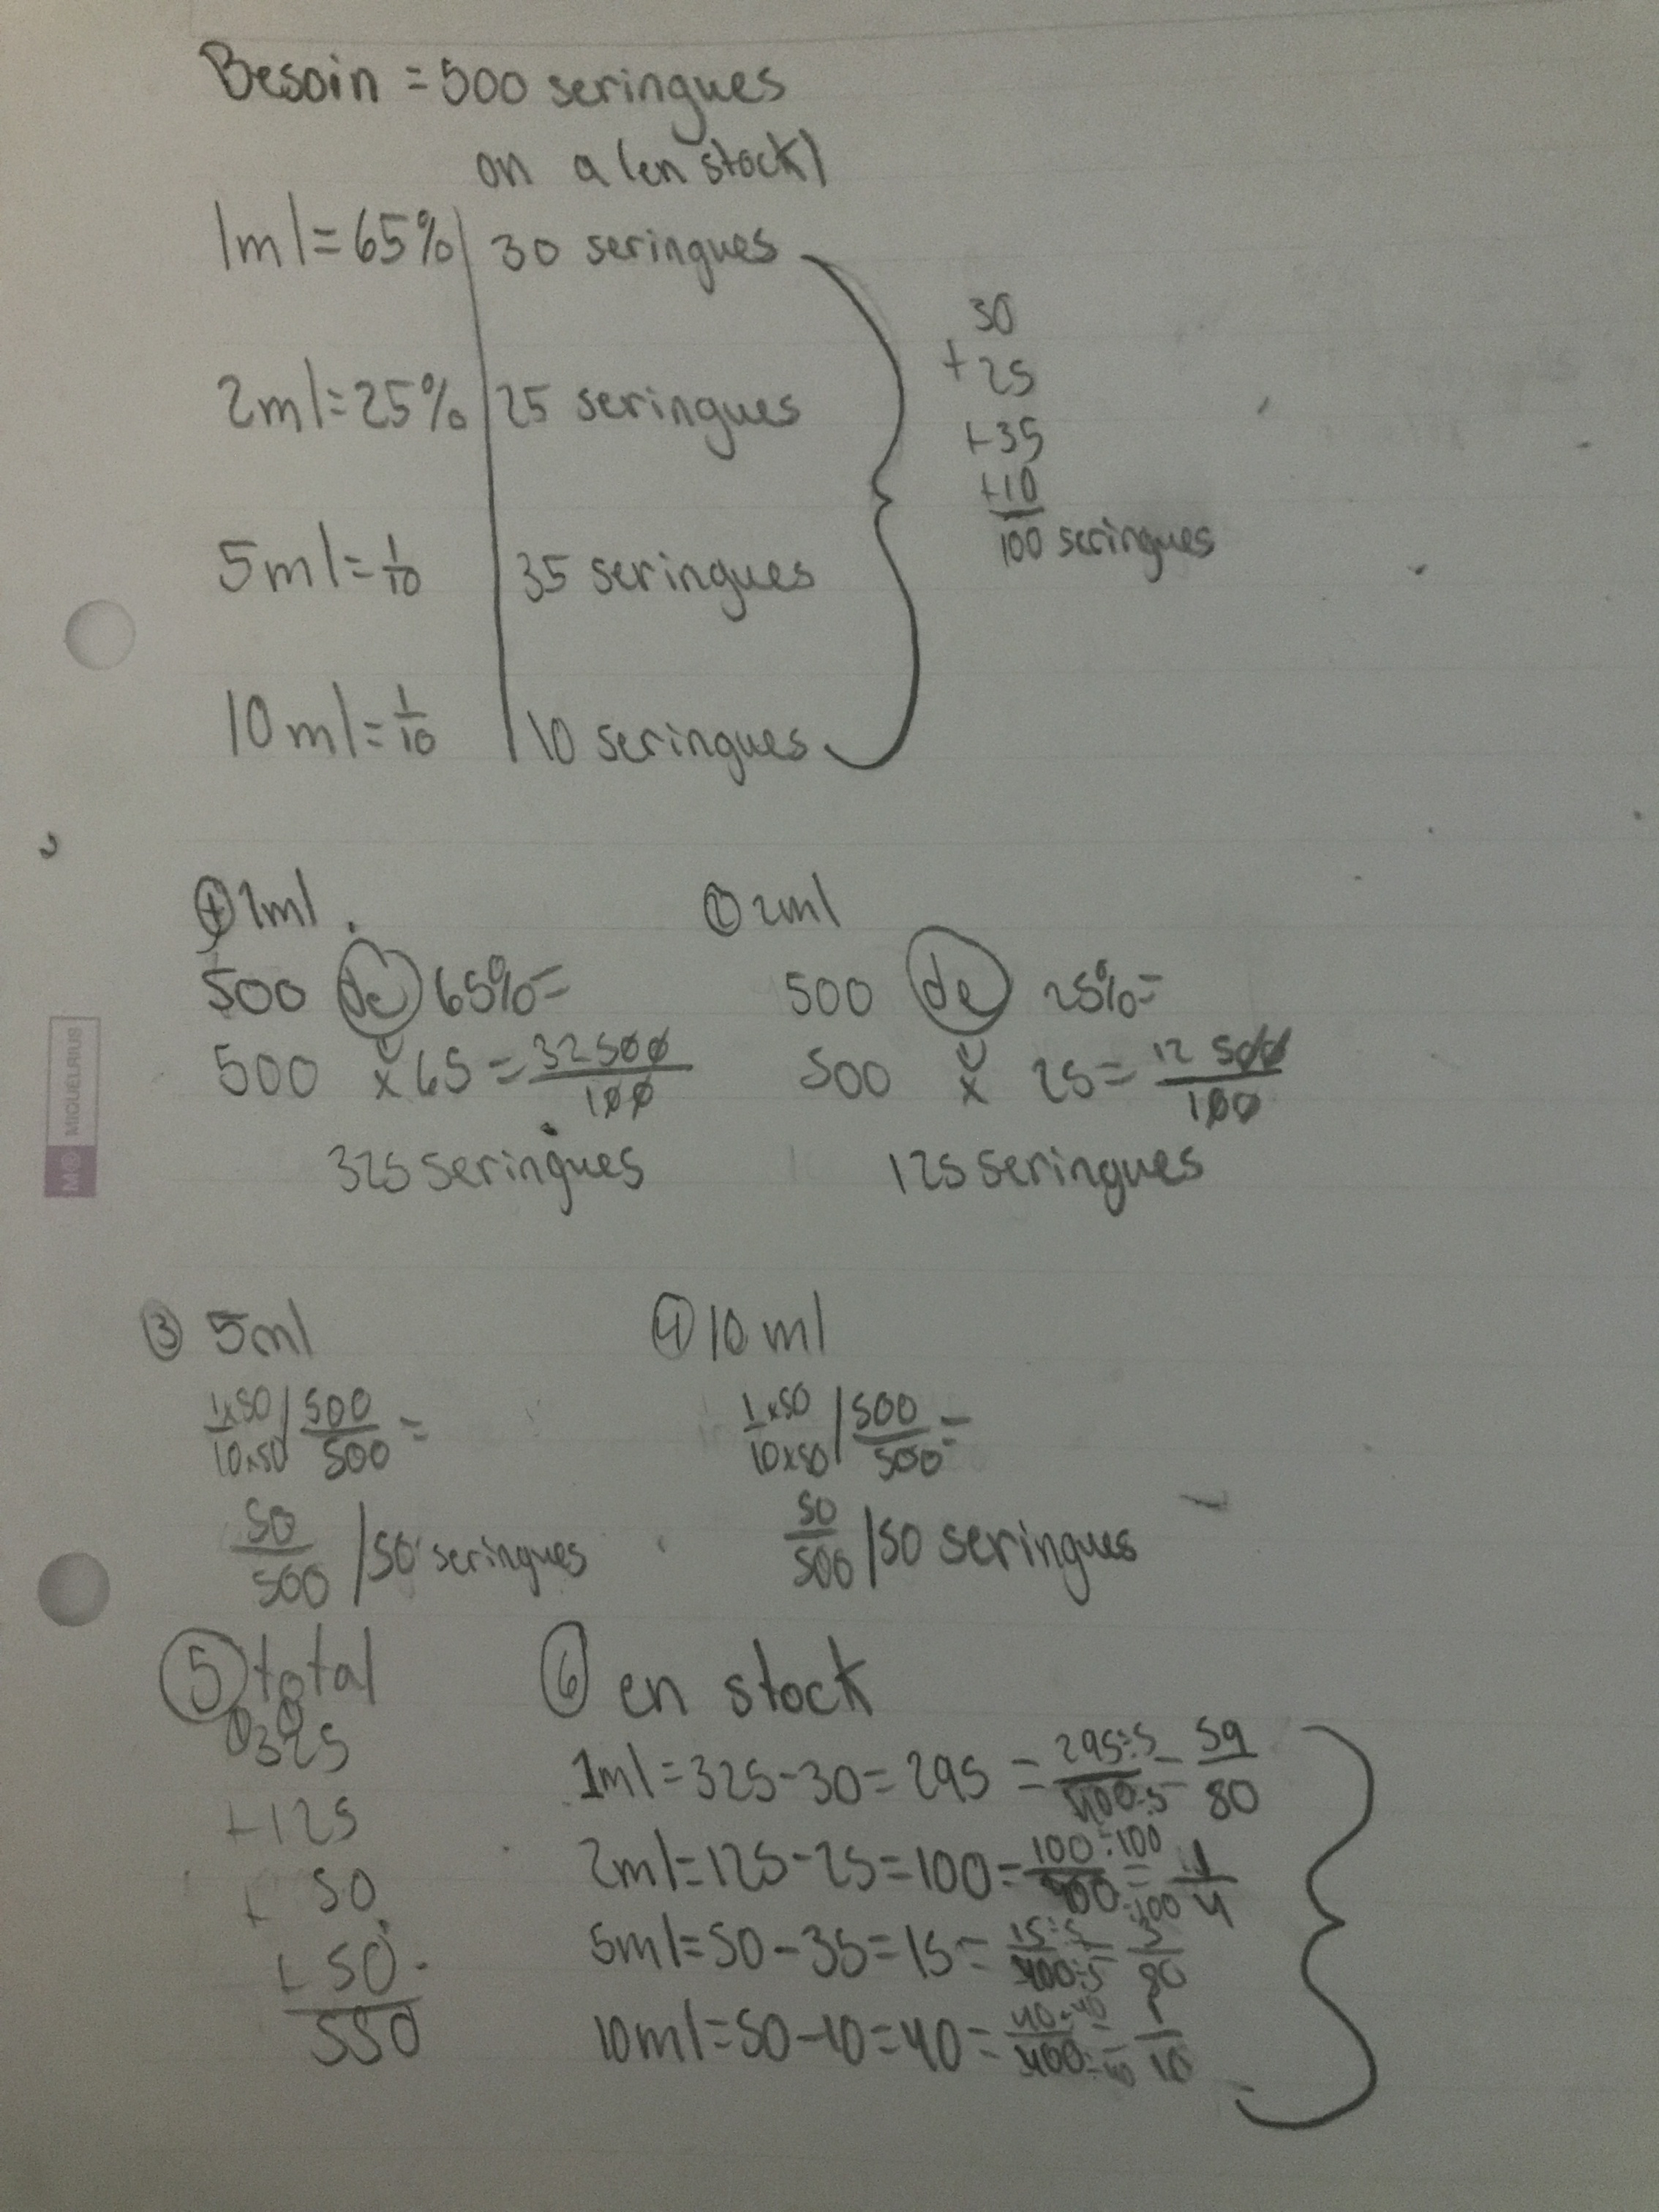 Besoin = 500 seringues
on a (en stock)
1ml = 65% | 30 seringues
2ml = 25% | 25 seringues
5ml = 1/10 | 35 seringues
10ml = 1/10 | 10 seringues
30
+25
+35
+10
100 seringues
① 1ml
500 de 65% =
500 x 65 = 32500/100
325 seringues
② 2ml
500 de 25% =
500 x 25 = 12500/100
125 seringues
③ 5ml
1x50/10x50 / 500/500 =
50/500 / 50 seringues
④ 10ml
1x50/10x50 / 500/500 =
50/500 / 50 seringues
⑤ total
325
+125
+ 50
+ 50
550
⑥ en stock
1ml = 325 - 30 = 295 = 295÷5/400÷5 = 59/80
2ml = 125 - 25 = 100 = 100÷100/400÷100 = 1/4
5ml = 50 - 35 = 15 = 15÷5/400÷5 = 3/80
10ml = 50 - 10 = 40 = 40÷40/400÷40 = 1/10
MIQUELRIUS